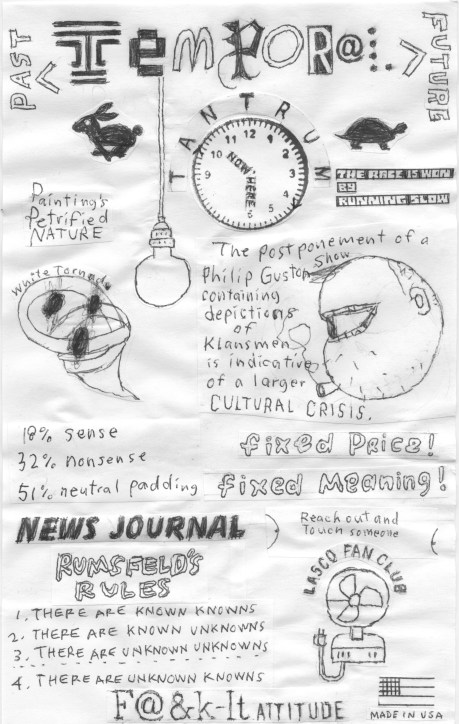 PAST
<
TEMPOR@L
>
FUTURE
TANTRUM
11 12 1
10 2
9 3
8 4
7 6 5
NOW
HERE
THE RACE IS WON
BY
RUNNING SLOW
Painting's
Petrified
NATURE
White Tornado
The postponement of a
Philip Guston show
containing
depictions
of
Klansmen
is indicative
of a larger
CULTURAL CRISIS.
18% sense
32% nonsense
51% neutral padding
fixed Price!
fixed Meaning!
NEWS JOURNAL
Reach out and
Touch someone
RUMSFELD'S
RULES
1. THERE ARE KNOWN KNOWNS
2. THERE ARE KNOWN UNKNOWNS
3. THERE ARE UNKNOWN UNKNOWNS
4. THERE ARE UNKNOWN KNOWNS
LASCO FAN CLUB
F@&k-It ATTITUDE
MADE IN USA